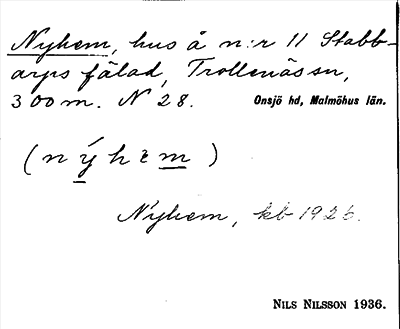 Nyhem, hus å n:r 11 Stabb-
arps fälad, Trollenäs sn,
300 m. N 28. Onsjö hd, Malmöhus län.
(nýhem)
Nyhem, kb 1926.
NILS NILSSON 1936.